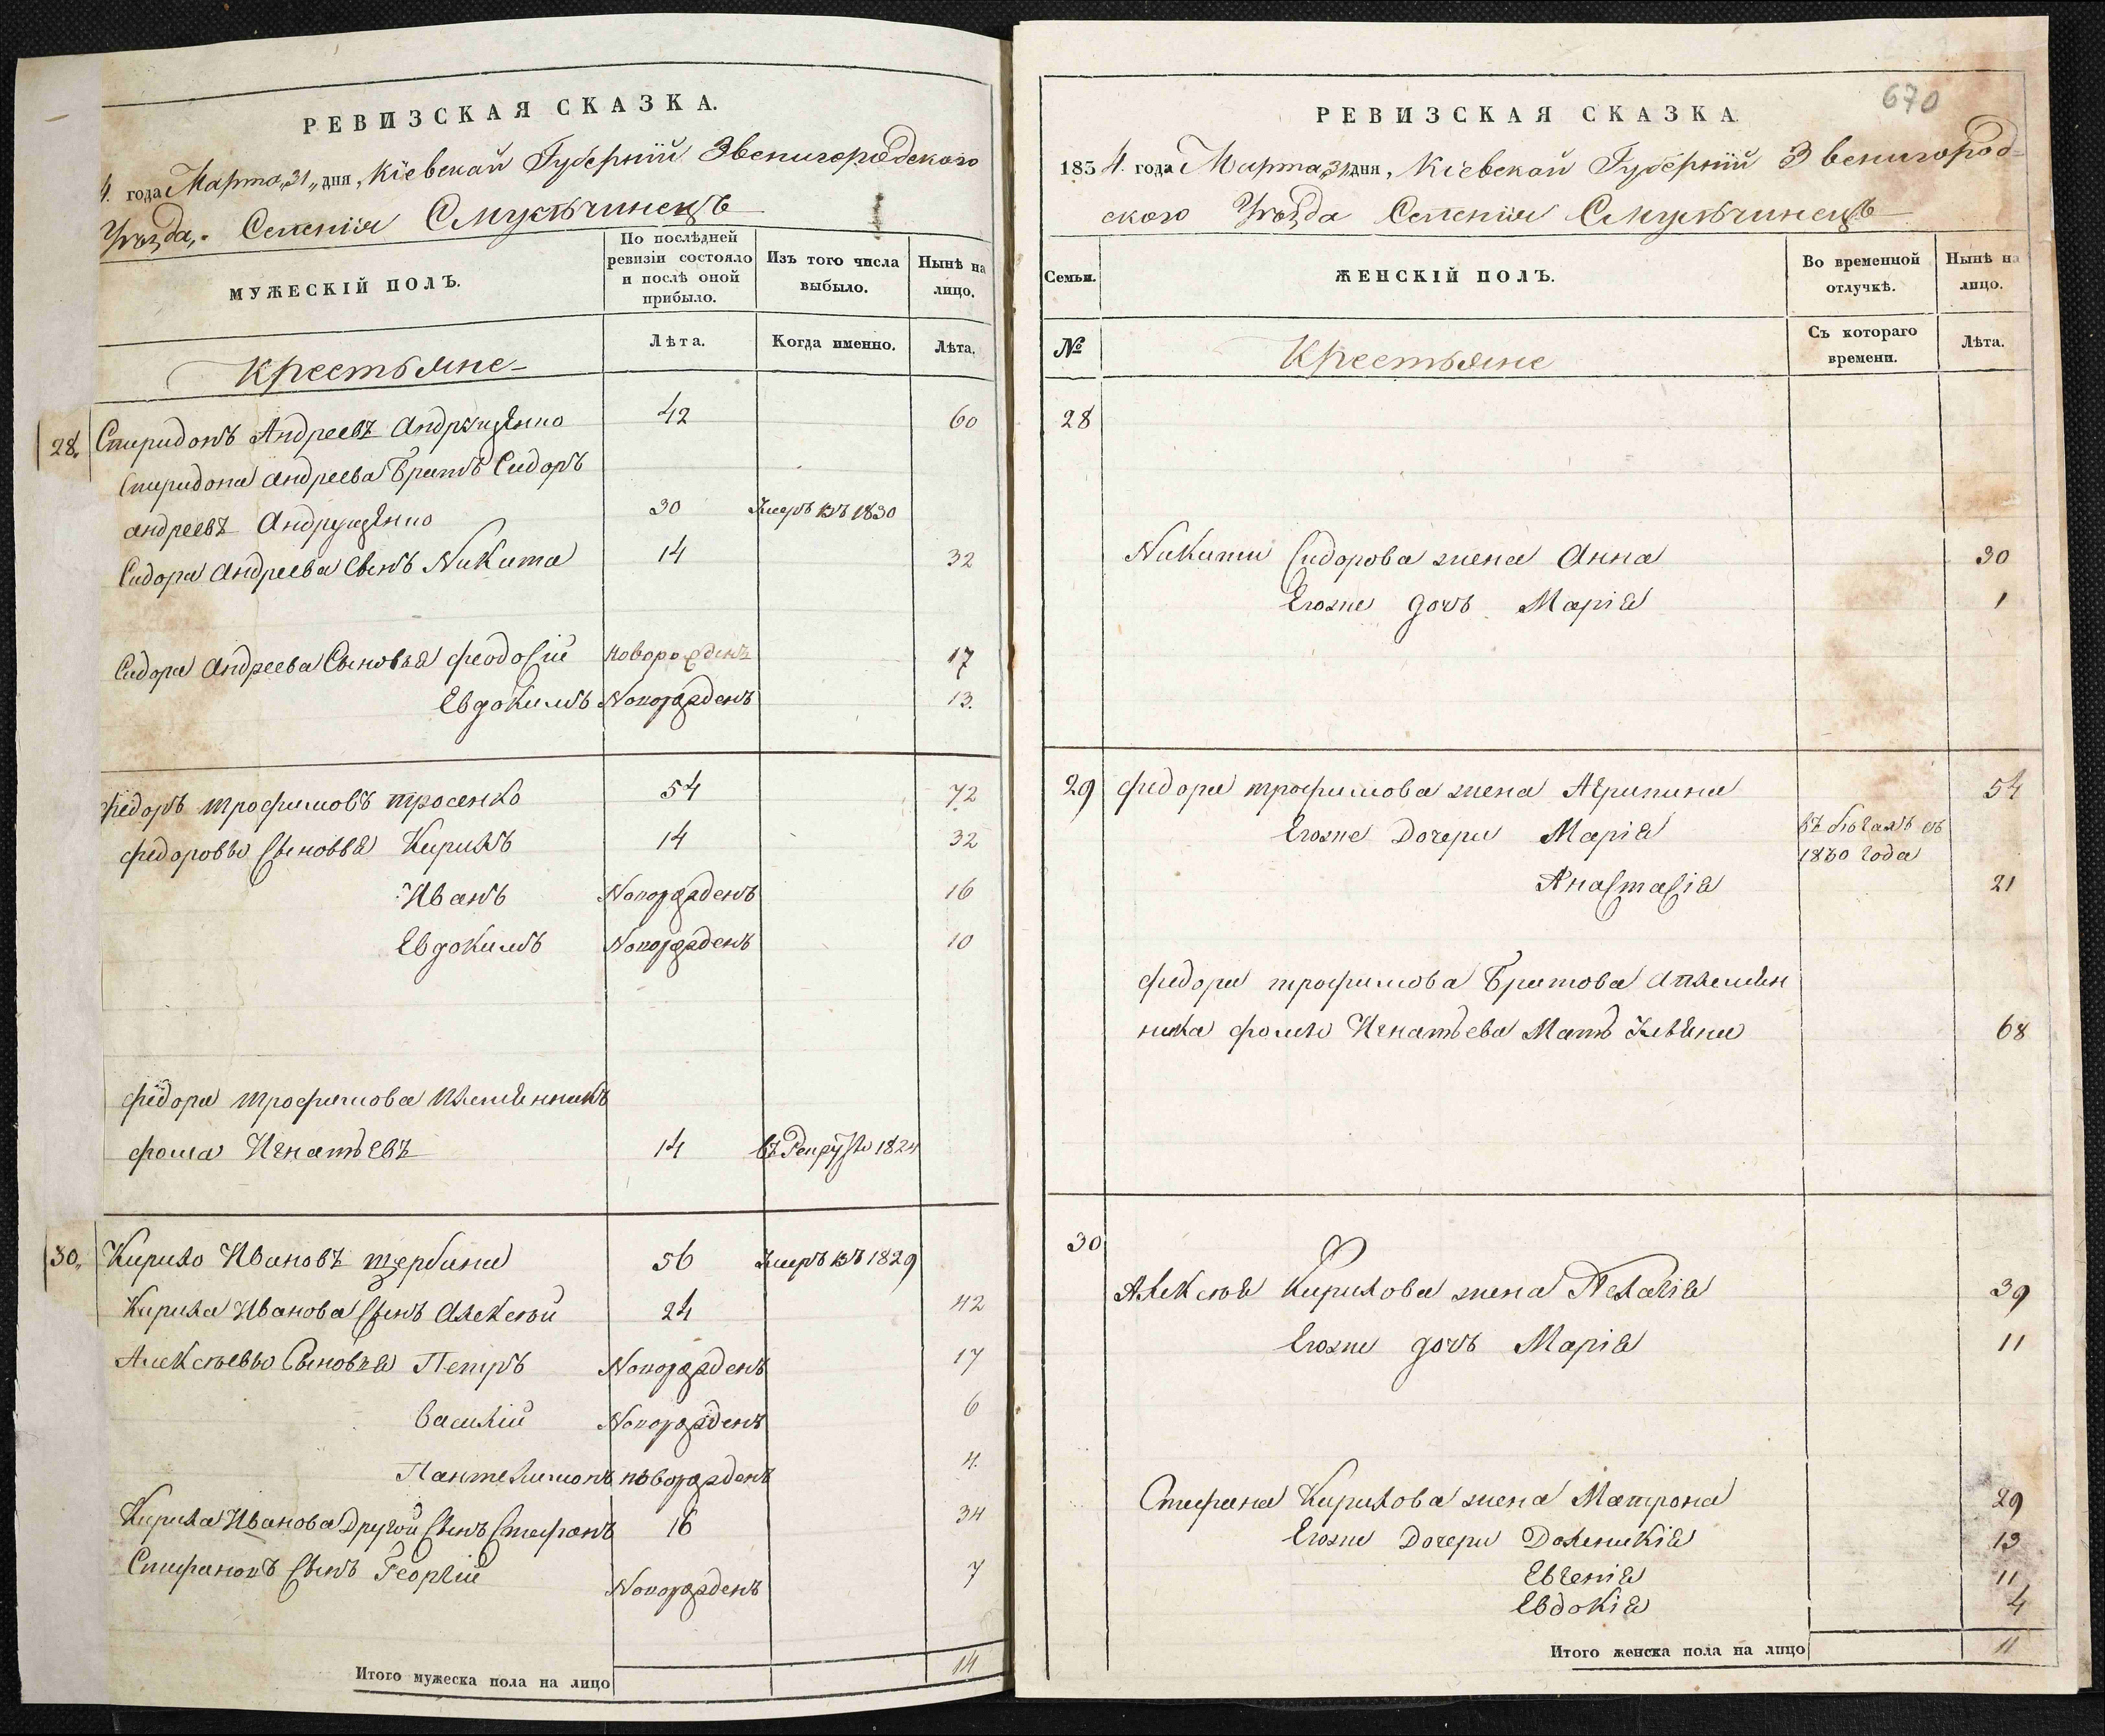 РЕВИЗСКАЯ СКАЗКА.
4. года Марта „31„ дня, Кіевской Губерніи Звенигородскаго
Уѣзда,. Селенія Смульчинецъ
МУЖЕСКІЙ ПОЛЪ.
По послѣдней ревизіи состояло и послѣ оной прибыло.
Изъ того числа выбыло.
Нынѣ на лицо.
Лѣта.
Когда именно.
Лѣта.
Крестьяне
28. Спиридонъ Андреевъ Андрущенко 42 60
Спиридона Андреева Братъ Сидоръ
андреевъ Андрущенко 30 Умеръ въ 1830
Сидора Андреева Сынъ Никита 14 32
Сидора Андреева Сыновья Феодосій новорожденъ 17
Евдокимъ Новорожденъ 13.
Федоръ трофимовъ тросенко 54 72
Федоровы Сыновья Кирилъ 14 32
Иванъ Новорожденъ 16
Евдокимъ Новорожденъ 10
Федора трофимова племянникъ
Фома Игнатьевъ 14 въ Рекруты 1824
30. Кирило Ивановъ щербина 56 Умеръ въ 1829
Кирила Иванова Сынъ Алексѣй 24 42
Алексѣевы Сыновья Петръ Новорожденъ 17
Василій Новорожденъ 6
Пантелимонъ новорожденъ 4.
Кирила Иванова Другой Сынъ Стефанъ 16 34
Стефановъ Сынъ Георгій Новорожденъ 7
Итого мужеска пола на лицо 14
670
РЕВИЗСКАЯ СКАЗКА
1854. года Марта 31 дня, Кіевской Губерніи Звенигород-
ского Уѣзда Селенія Смульчинецъ
Семьи.
ЖЕНСКІЙ ПОЛЪ.
Во временной отлучкѣ.
Нынѣ на лицо.
№
Крестьяне
Съ котораго времени.
Лѣта.
28
Никиты Сидорова жена Анна 30
Егоже дочь Марія 1
29 Федора трофимова жена Агрипина 54
Егоже Дочери Марія въ бѣгахъ съ
1830 года
Анастасія 21
Федора трофимова Братова а племян
ника Фомы Игнатьева Мать 68
30
Алексѣя Кирилова жена Пелагія 39
Егоже дочь Марія 11
Стефана Кирилова жена Матрона 29
Егоже Дочери Доминикія 13
Евгенія 11
Евдокія 4
Итого женска пола на лицо 11